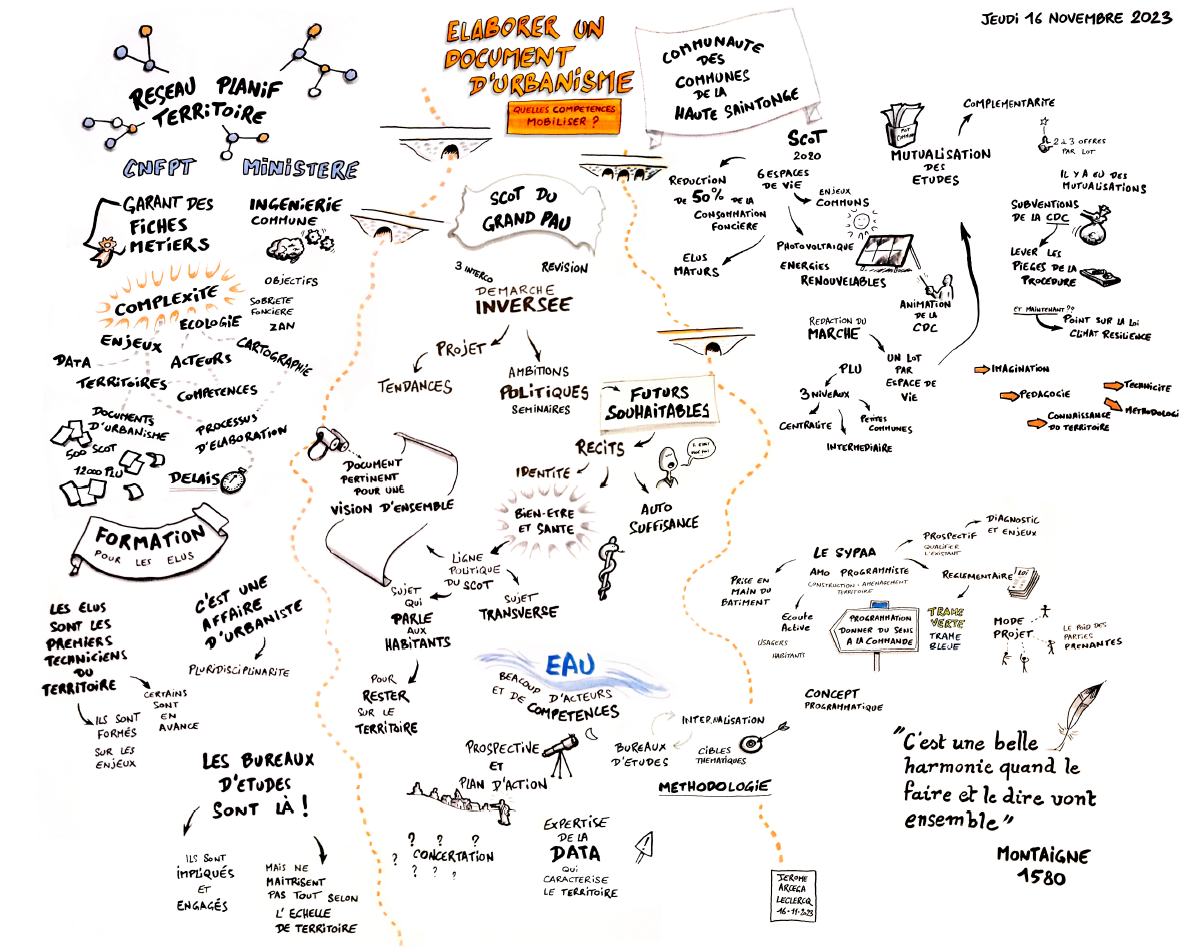 JEUDI 16 NOVEMBRE 2023
ELABORER UN
DOCUMENT
D'URBANISME
QUELLES COMPETENCES
MOBILISER ?
RESEAU PLANIF
TERRITOIRE
CNFPT
MINISTERE
GARANT DES
FICHES
METIERS
INGENIERIE
COMMUNE
OBJECTIFS
SOBRETE
FONCIERE
ZAN
COMPLEXITE
ECOLOGIE
ENJEUX
CARTOGRAPHIE
DATA
ACTEURS
TERRITOIRES
COMPETENCES
DOCUMENTS
D'URBANISME
500 SCOT
12000 PLU
PROCESSUS
D'ELABORATION
DELAIS
FORMATION
POUR LES ELUS
LES ELUS
SONT LES
PREMIERS
TECHNICIENS
DU
TERRITOIRE
CERTAINS
SONT
EN
AVANCE
ILS SONT
FORMÉS
SUR LES
ENJEUX
C'EST UNE
AFFAIRE
D'URBANISTE
PLURIDISCIPLINARITE
LES BUREAUX
D'ETUDES
SONT LÀ !
ILS SONT
IMPLIQUÉS
ET
ENGAGÉS
MAIS NE
MAITRISENT
PAS TOUT SELON
L'ECHELLE
DE TERRITOIRE
SCOT DU
GRAND PAU
3 INTERCO
REVISION
DEMARCHE
INVERSEE
PROJET
TENDANCES
AMBITIONS
POLITIQUES
SEMINAIRES
FUTURS
SOUHAITABLES
RECITS
IDENTITE
BIEN-ETRE
ET SANTE
AUTO
SUFFISANCE
DOCUMENT
PERTINENT
POUR UNE
VISION D'ENSEMBLE
LIGNE
POLITIQUE
DU
SCOT
SUJET
TRANSVERSE
SUJET
QUI
PARLE
AUX
HABITANTS
POUR
RESTER
SUR LE
TERRITOIRE
EAU
BEACOUP D'ACTEURS
ET DE COMPETENCES
PROSPECTIVE
ET
PLAN D'ACTION
? ? ?
? CONCERTATION
? ? ?
EXPERTISE
DE LA
DATA
QUI
CARACTERISE
LE TERRITOIRE
INTERNALISATION
BUREAUX
D'ETUDES
CIBLES
THEMATIQUES
METHODOLOGIE
JEROME
ARCEGA
LECLERCQ
16-11-2023
COMMUNAUTE
DES
COMMUNES
DE LA
HAUTE SAINTONGE
SCOT
2020
REDUCTION
DE 50% DE LA
CONSOMMATION
FONCIERE
6 ESPACES
DE VIE
ENJEUX
COMMUNS
ELUS
MATURS
PHOTOVOLTAIQUE
ENERGIES
RENOUVELABLES
ANIMATION
DE LA
CDC
REDACTION DU
MARCHE
PLU
UN LOT
PAR
ESPACE DE
VIE
3 NIVEAUX
CENTRALITE
INTERMEDIAIRE
PETITES
COMMUNES
MUTUALISATION
DES
ETUDES
COMPLEMENTARITE
2 à 3 OFFRES
PAR LOT
IL Y A EU DES
MUTUALISATIONS
SUBVENTIONS
DE LA CDC
LEVER LES
PIEGES DE LA
PROCÉDURE
ET MAINTENANT ??
POINT SUR LA LOI
CLIMAT RESILIENCE
IMAGINATION
PEDAGOGIE
CONNAISSANCE
DU TERRITOIRE
TECHNICITE
METHODOLOGI
LE SYPAA
AMO PROGRAMMISTE
CONSTRUCTION - AMENAGEMENT
TERRITOIRE
PROSPECTIF
QUALIFIER
L'EXISTANT
DIAGNOSTIC
ET ENJEUX
REGLEMENTAIRE
LOI
PRISE EN
MAIN DU
BATIMENT
ECOUTE
ACTIVE
USAGERS
HABITANTS
PROGRAMMATION
DONNER DU SENS
A LA COMMANDE
TRAME
VERTE
TRAME
BLEUE
MODE
PROJET
LE POID DES
PARTIES
PRENANTES
CONCEPT
PROGRAMMATIQUE
"C'est une belle
harmonie quand le
faire et le dire vont
ensemble"
MONTAIGNE
1580